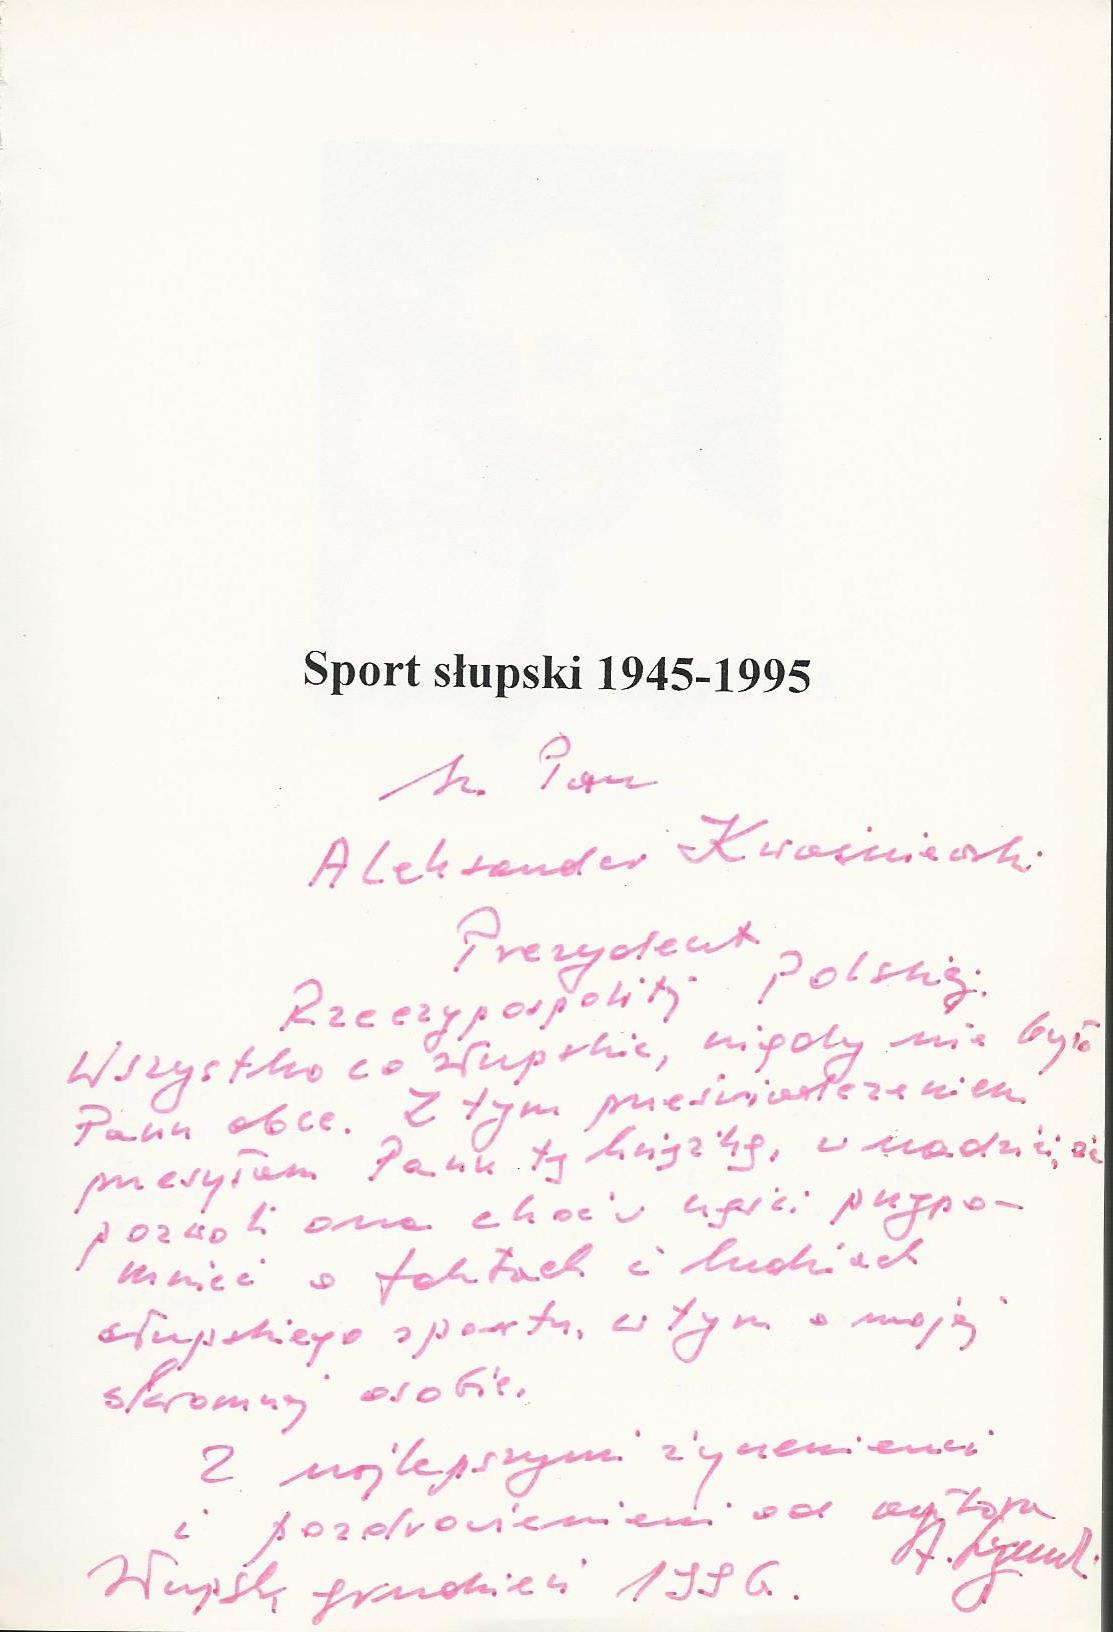 Sport słupski 1945-1995
Sz. Pan
Aleksander Kwaśniewski
Prezydent
Rzeczypospolitej Polskiej.
Wszystko co słupskie, nigdy nie było
Panu obce. Z tym przeświadczeniem
przesyłam Panu tę książkę, w nadziei, że
pozwoli ona choć w części przypo-
mnieć o faktach i ludziach
słupskiego sportu, w tym o mojej
skromnej osobie.
Z najlepszymi życzeniami
i pozdrowieniami od autora
Słupsk, grudzień 1996.